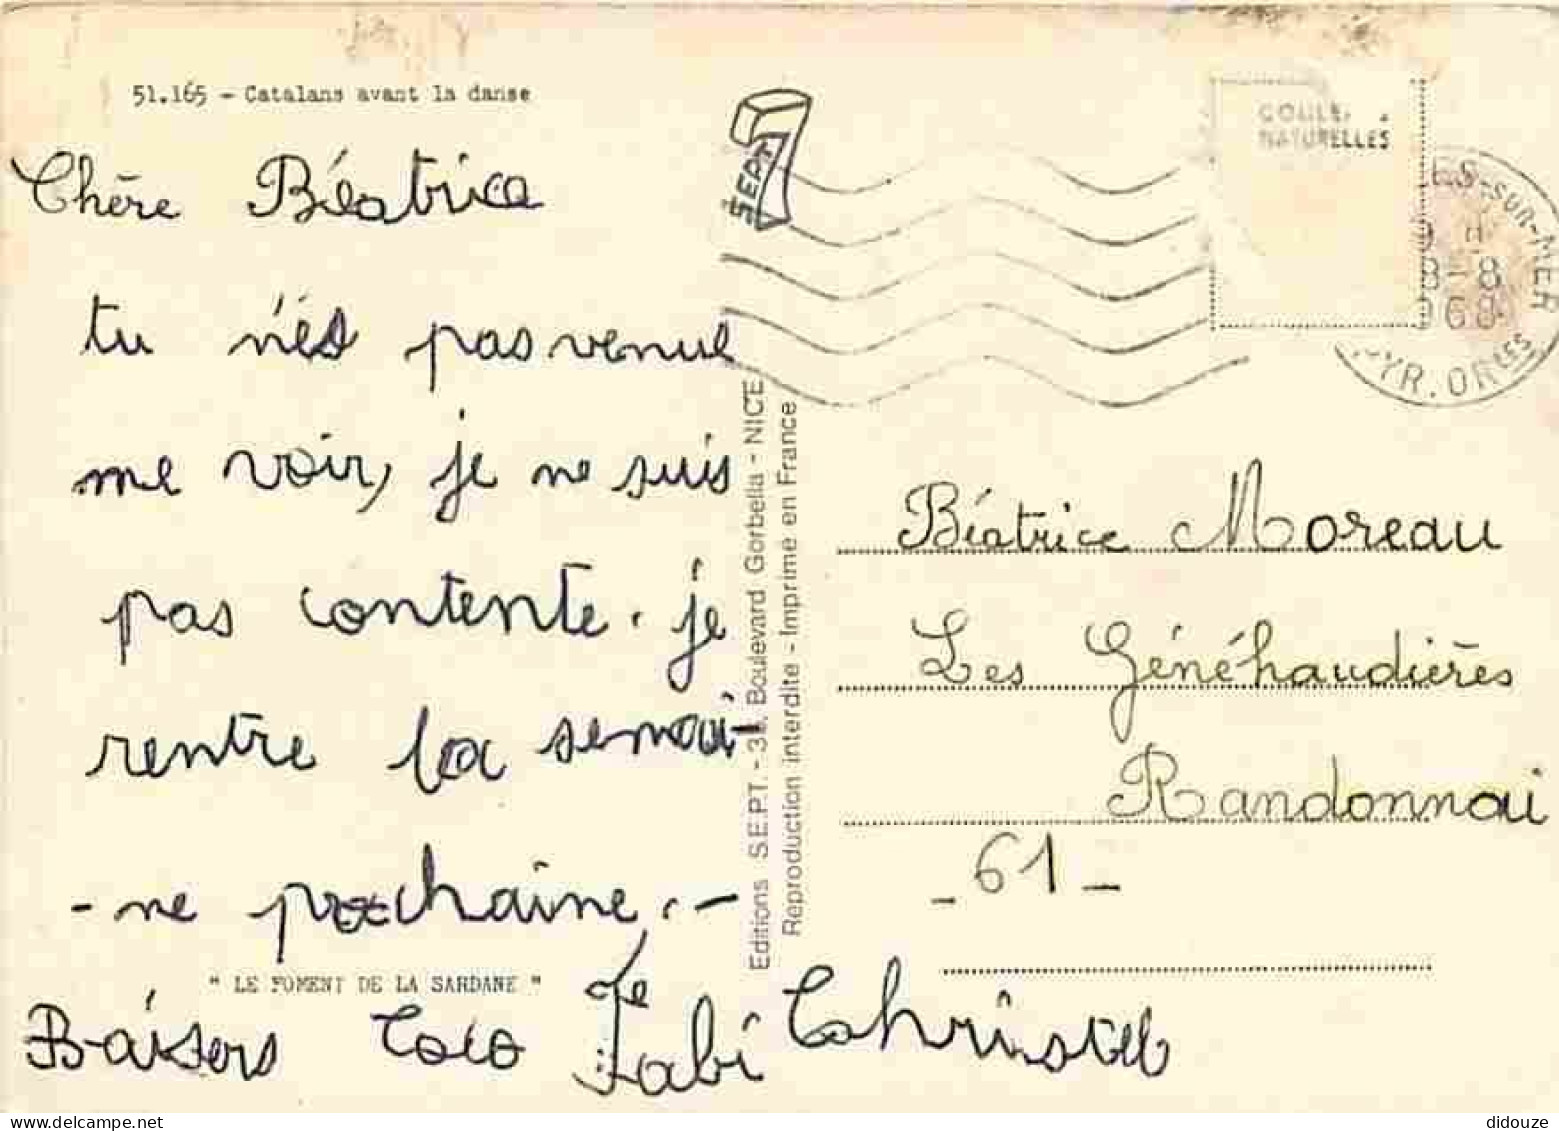 51.165 - Catalans avant la danse
Chère Béatrice
tu n'es pas venue
me voir, je ne suis
pas contente. je
rentre la semai-
-ne prochaine.-
" LE FOMENT DE LA SARDANE "
Baisers Coco
Fabi Christel
SEPT
Editions S.E.P.T. - Boulevard Gorbella - NICE
Reproduction interdite - Imprimé en France
NATURELLES
ES-SUR-MER
8
PYR. ORLES
Béatrice Moreau
Les Généhaudières
Randonnai
- 61 -
didouze